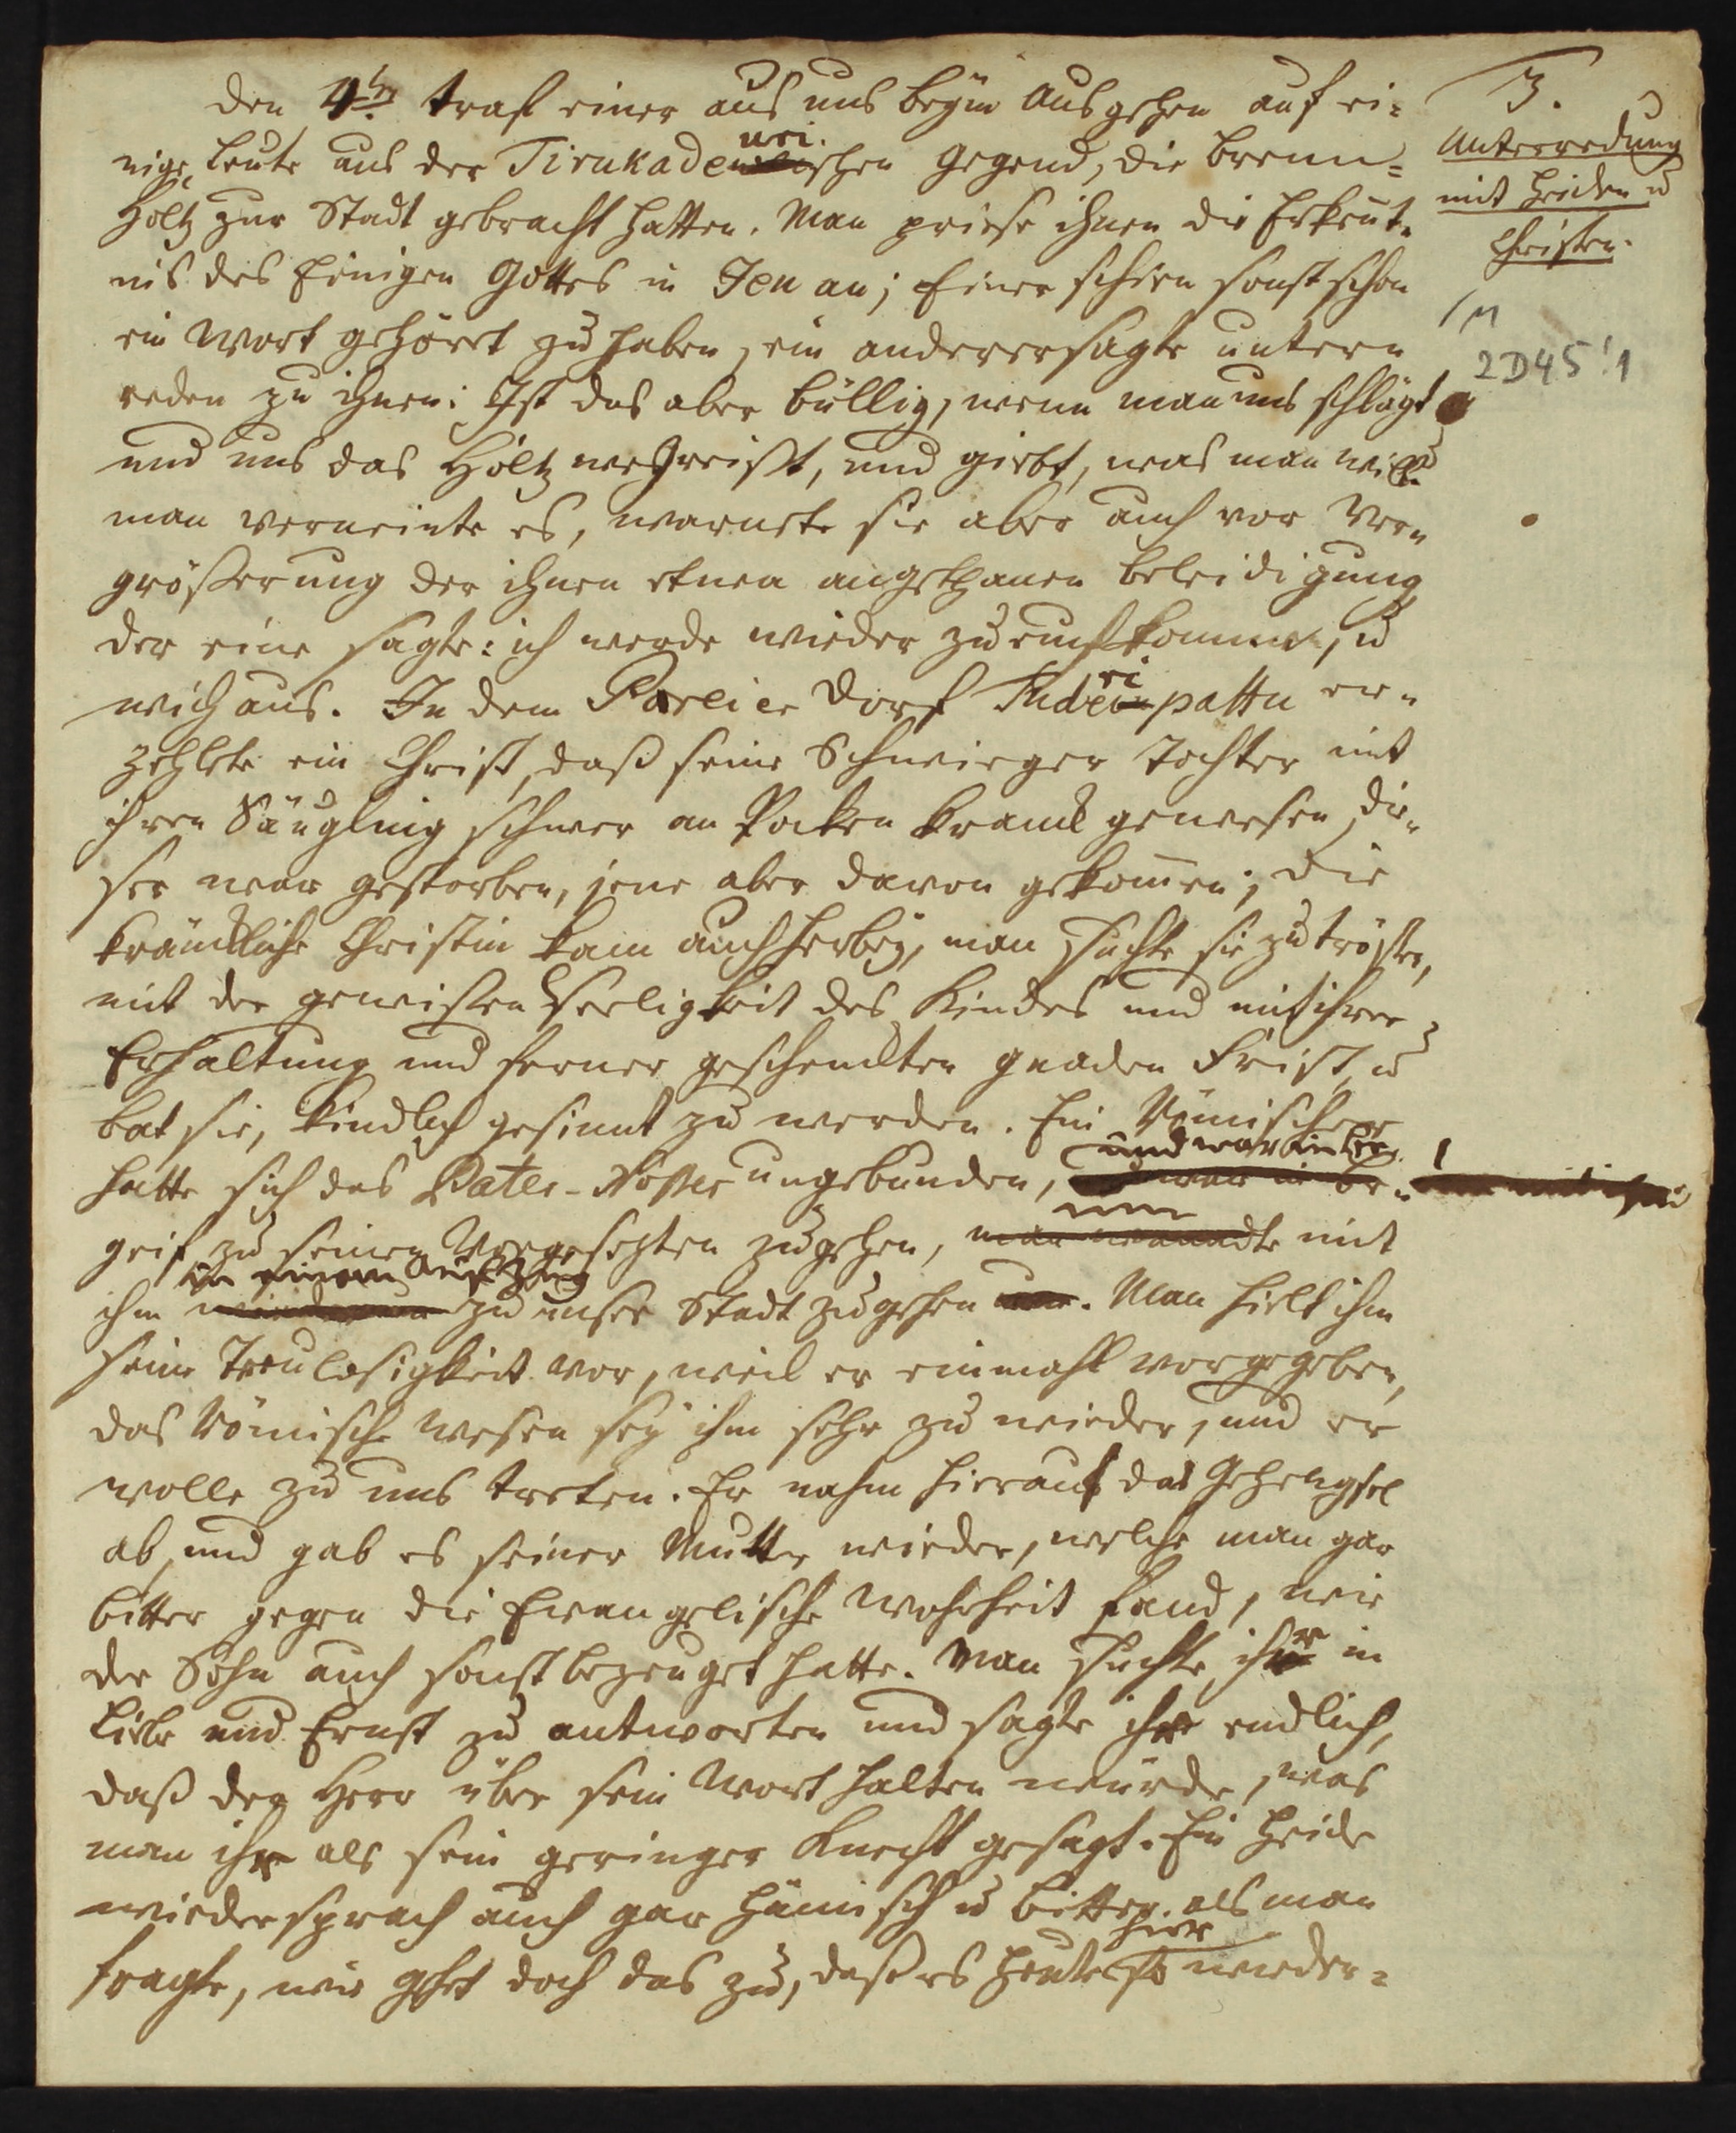 3.
Unterredung
mit Heiden u
Christen.
1M
2D45:1
den 4ten traf einer aus uns beym Ausgehen auf ei-
nige Leute aus der Tirukadeurischen Gegend, die Brenn-
Holtz zur Stadt gebracht hatten. Man priese ihnen die Erkent-
nis des Einigen Gottes in Jesu an; Einer schien sonst schon
ein Wort gehöret zu haben, ein anderer sagte unterm
reden zu ihnen: Ist das aber billig, wenn man uns schlägt
und uns das Holtz wegreißt, und giebt, was man will
man verneinte es, warnete sie aber auch vor Ver-
größerung der ihnen etwa angethanen Beleidigung
der eine sagte: ich werde wieder zu euch kommen, u
wich aus. In dem Pareier Dorf Tuderipattu er-
zehlete ein Christ, daß seine Schwieger Tochter mit
ihren Säugling schwer an Pocken kranck gewesen, die-
ser war gestorben, jene aber davon gekommen; die
kränckliche Christin kam auch herbey, man suchte sie zu trösten,
mit der gewissen Seeligkeit des Kindes und mit ihrer
Erhaltung und ferner geschenckten Gnaden Frist, u
bat sie, kindlich gesinnt zu werden. Ein Römischer
hatte sich das Pater-Noster umgebunden, und war im Be-
grif zu seinen Vorgesezten zu gehen, um mit
ihm in einem Aufzug zu unser Stadt zu gehen. Man hielt ihm
seine Treulosigkeit vor, weil er einmahl vorgegeben,
das Römische Wesen sey ihm sehr zu wieder, und er
wolle zu uns treten. Er nahm hierauf das Gehengsel
ab, und gab es seiner Mutter wieder, welche man gar
bitter gegen die Evangelische Wahrheit fand, wie
der Sohn auch sonst bezeuget hatte. Man suchte ihr in
Liebe und Ernst zu antworten und sagte ihr endlich,
daß der Herr über sein Wort halten würde, was
man ihr als sein geringer Knecht gesagt. Ein Heide
wiedersprach auch gar hämisch u bitter. als man
fragte, wie gehet doch das zu, daß es heute hier so wieder-